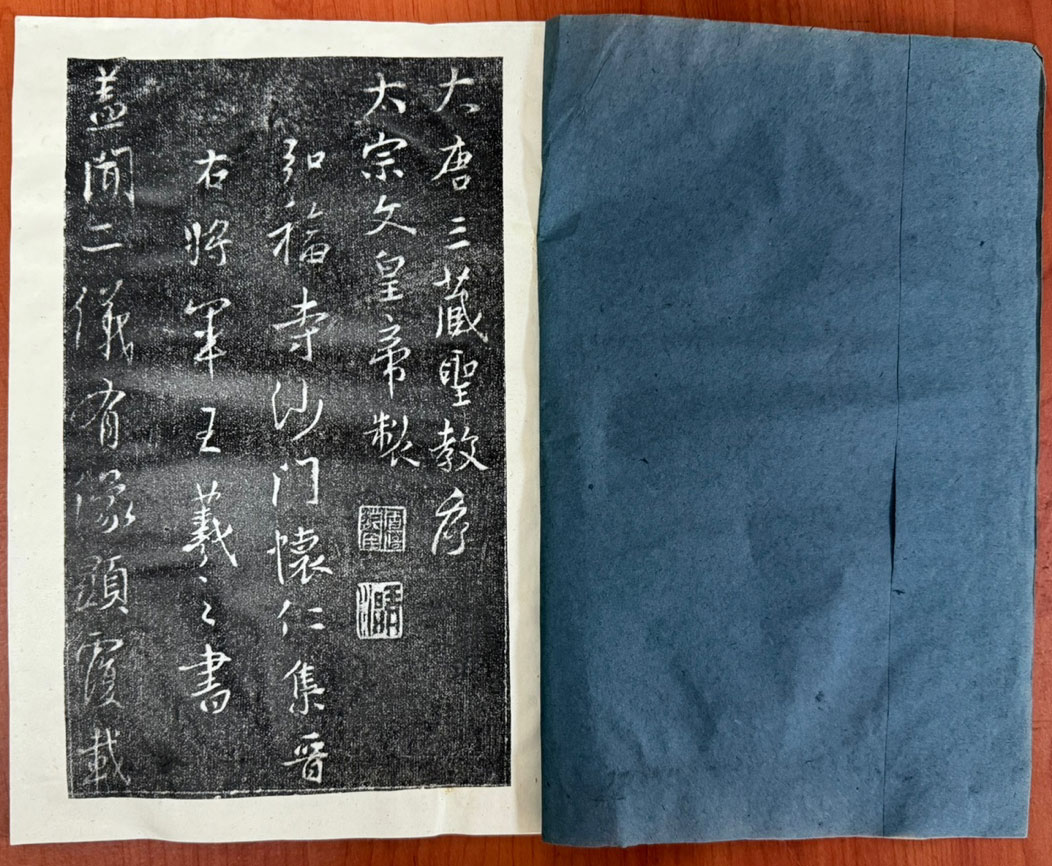 大唐三藏聖教序
太宗文皇帝製
弘福寺沙门懷仁集晉
右将軍王羲之書
盖聞二儀有像顯覆載